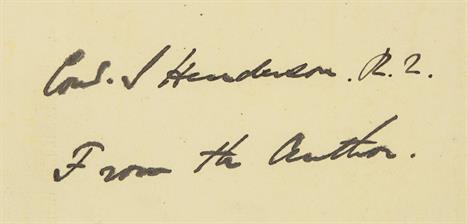 Comd. I Henderson. R.N.
From the Author.